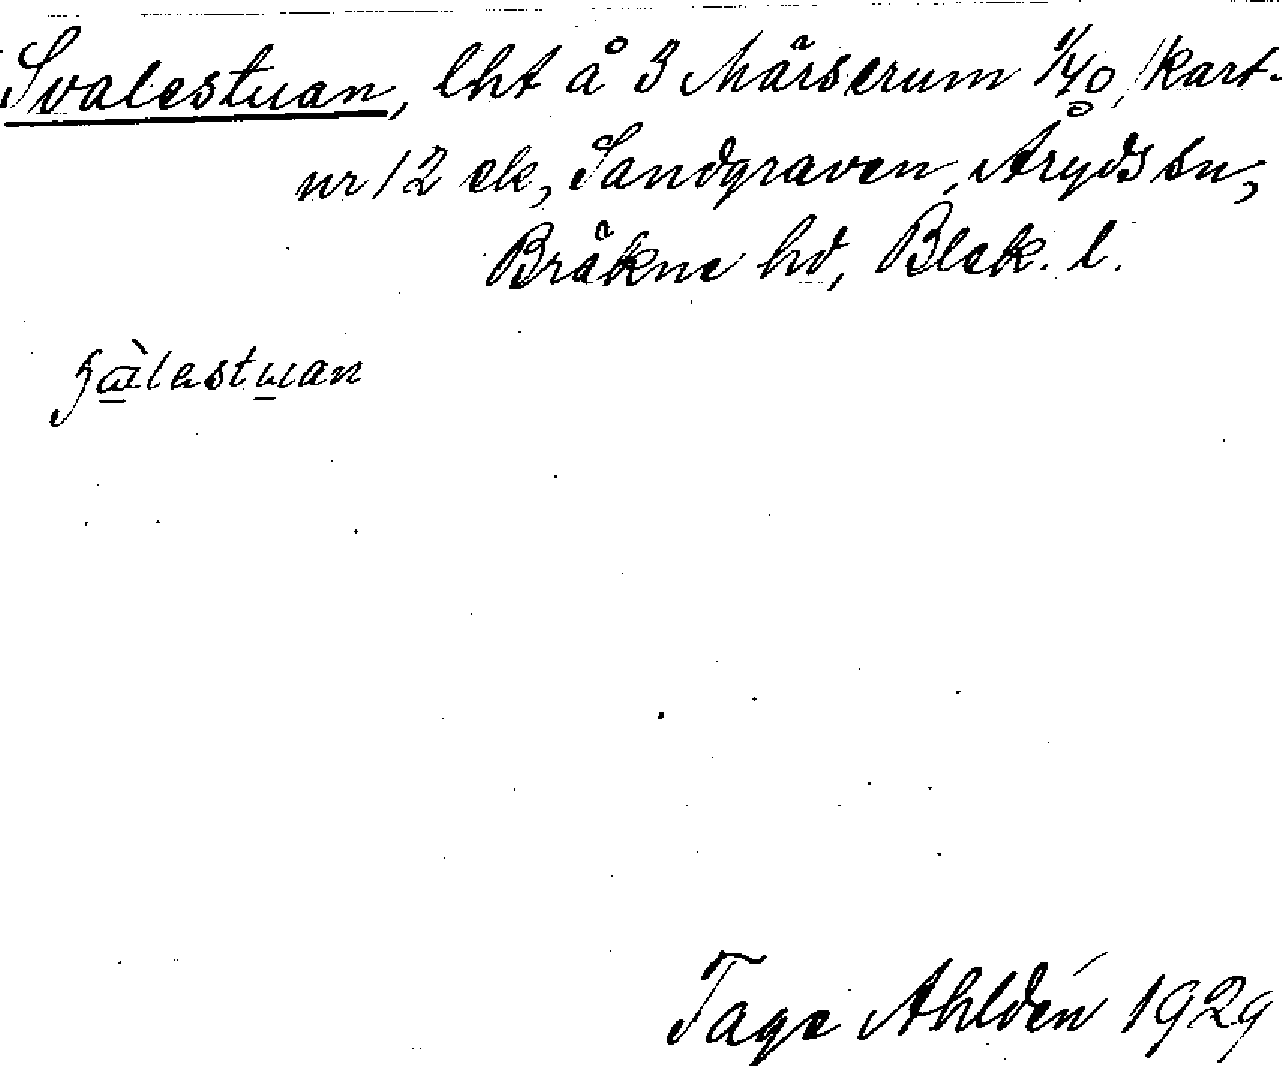 Svalestuan, lht å 3 Märserum 1/40, kart-
nr 12 ek, Sandgraven, Åryds sn,
Bräkne hd, Blek. l.
Tage Ahldén 1929